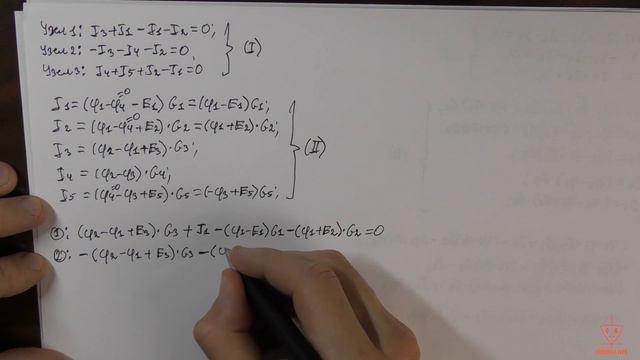 Узел 1: I3+J1-I1-I2=0;
Узел 2: -I3-I4-J2=0;
Узел 3: I4+I5+J2-J1=0
(I)
I1=(φ1-φ4-E1)G1=(φ1-E1)G1;
=0
I2=(φ1-φ4+E2)·G2=(φ1+E2)·G2;
=0
I3=(φ2-φ1+E3)·G3;
I4=(φ2-φ3)·G4;
I5=(φ4-φ3+E5)·G5=(-φ3+E5)G5;
=0
(II)
①: (φ2-φ1+E3)·G3+J1-(φ1-E1)G1-(φ1+E2)·G2=0
②: -(φ2-φ1+E3)·G3-(φ